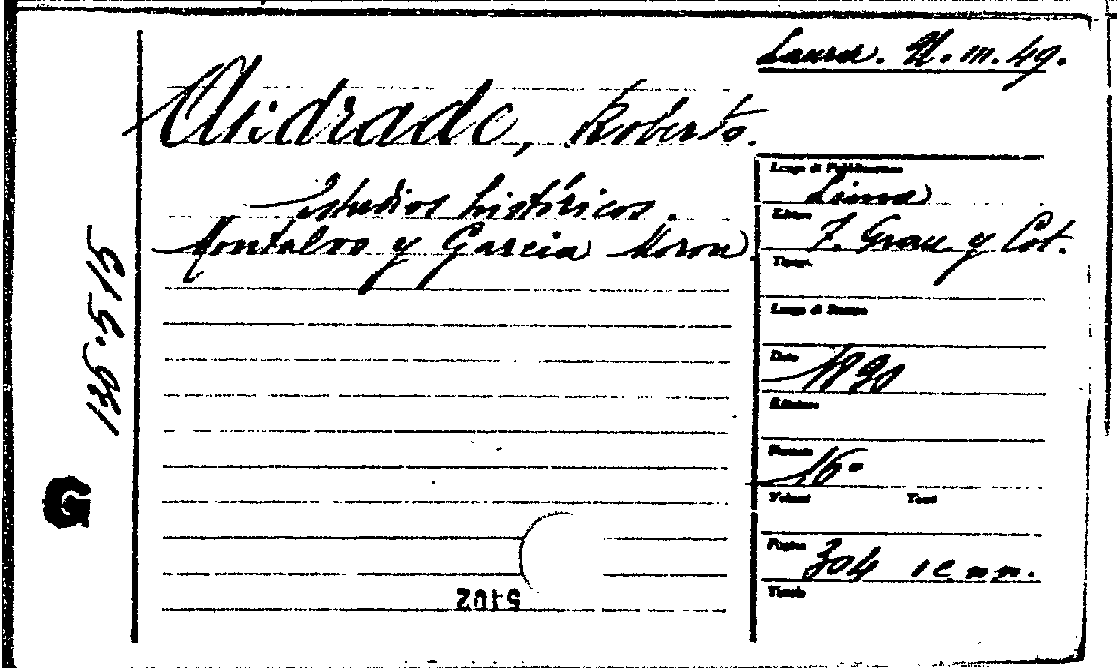 Laura. N. m. 49.
Andrade, Roberto.
Estudios históricos.
Montalvo y García Moreno.
Luogo di Pubblicazione
Lima
Editore
J. Grau y Cot.
Tipogr.
Luogo di Stampa
Data
1890
Edizione
Formato
16°
Volumi Tomi
Pagine
304 1 c nn.
Titolo
135.515
G